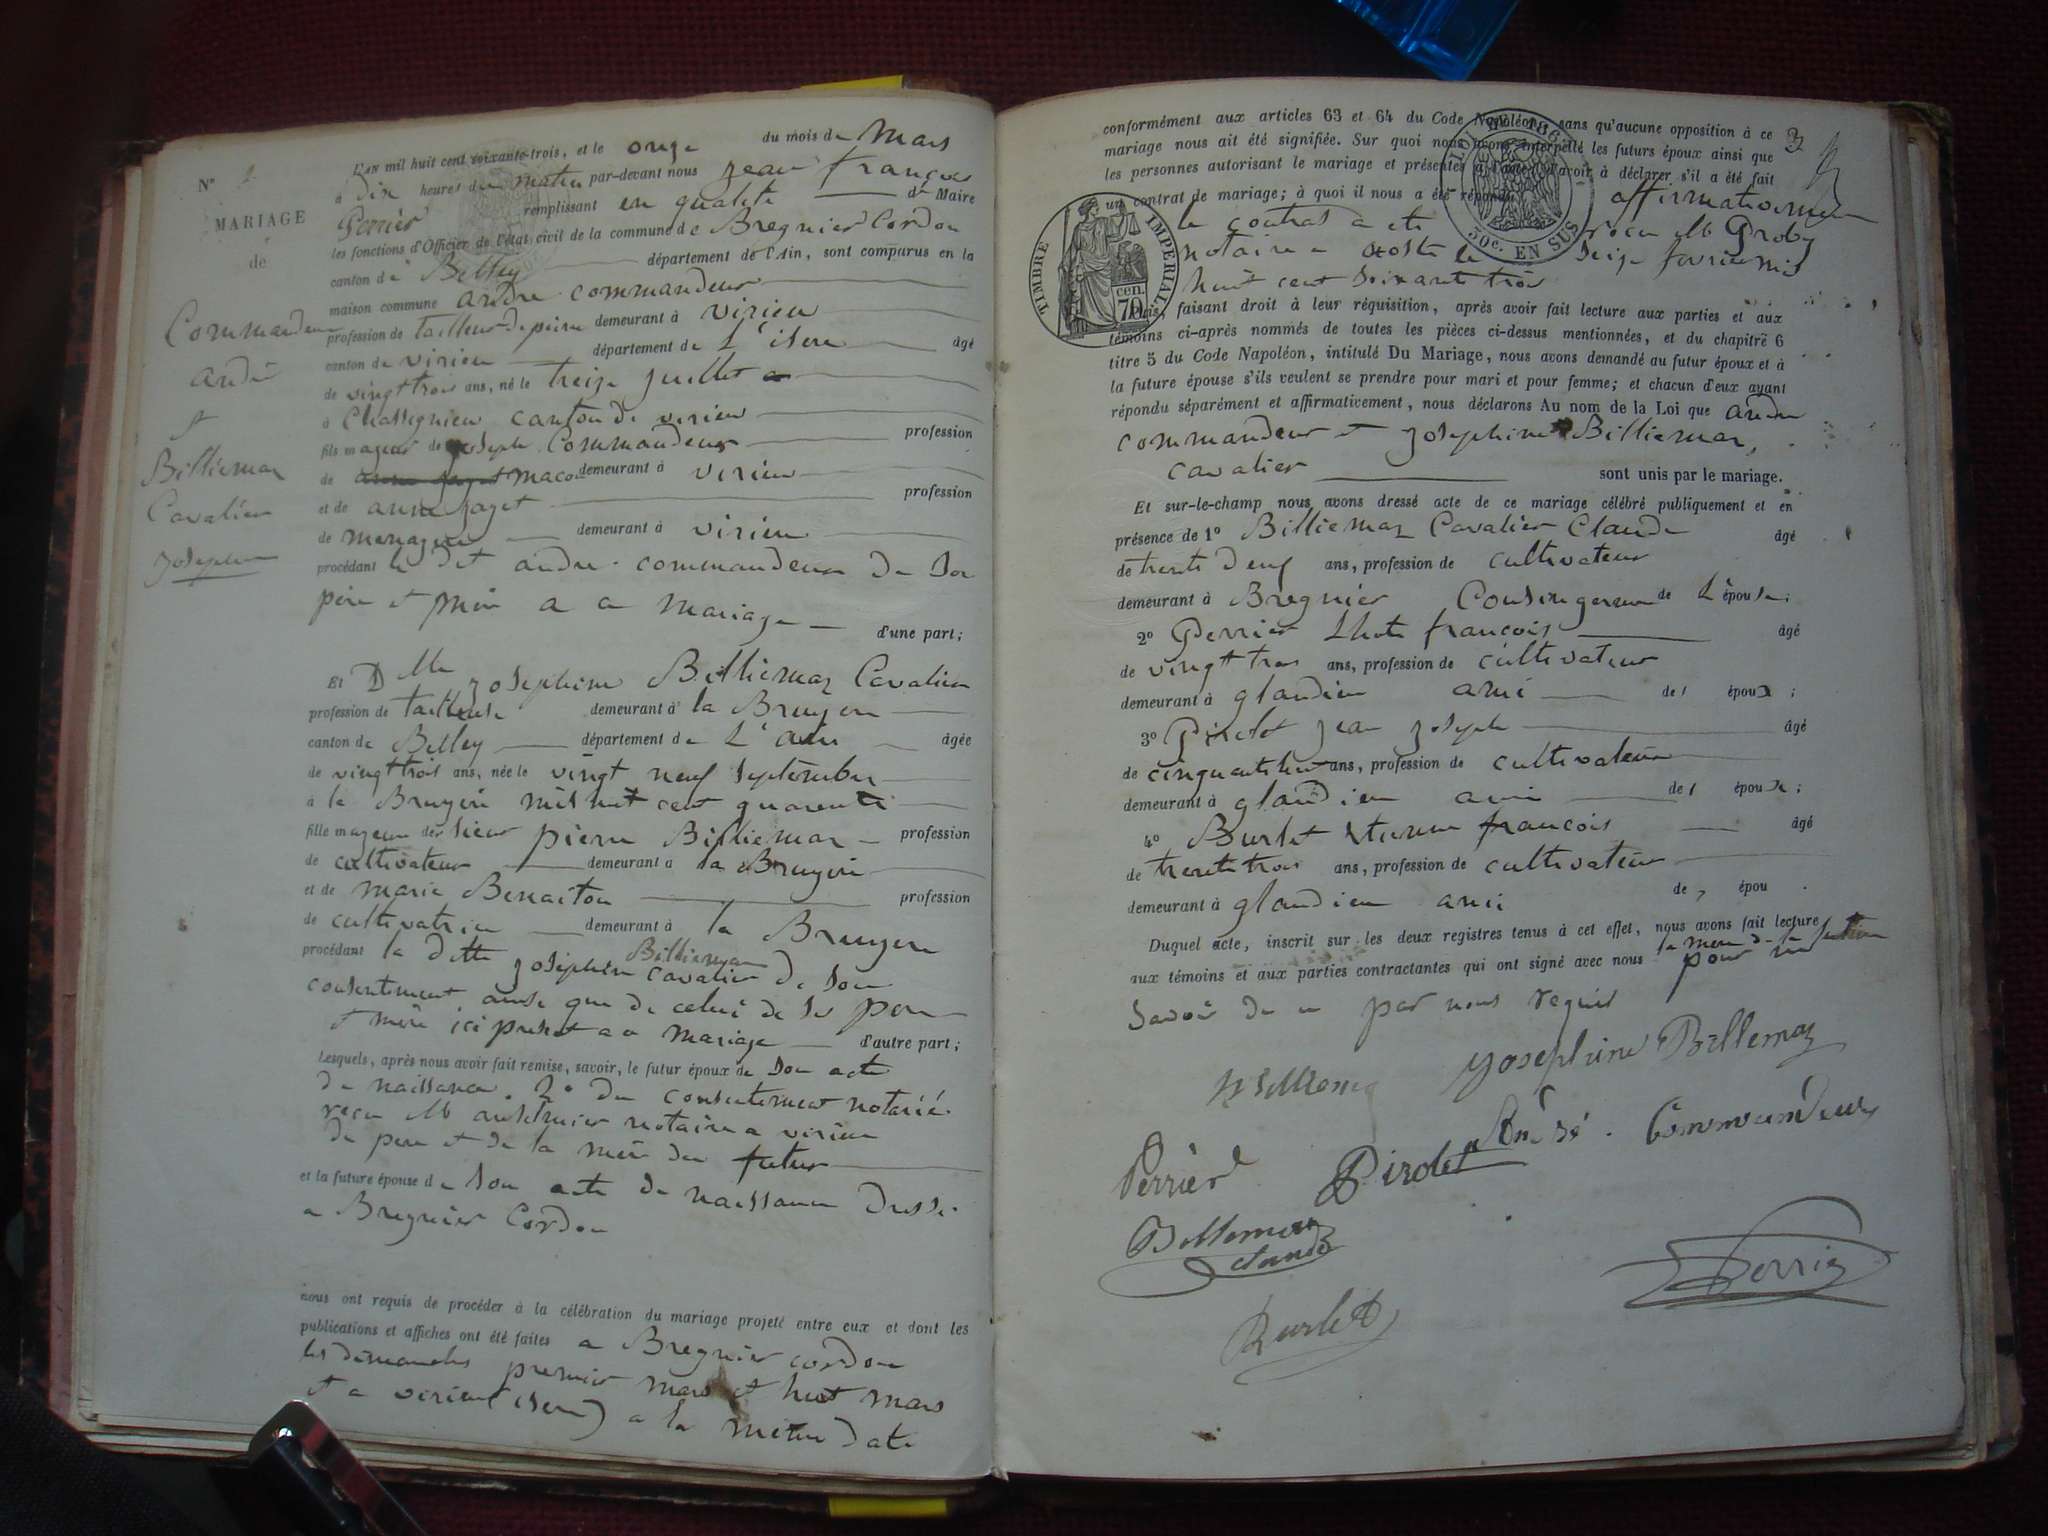 N° 2
MARIAGE
de
Commandeur
andré
et
Billiemaz
Cavalier
Josephine
L'an mil huit cent soixante-trois, et le onze du mois de mars
à dix heures du matin par-devant nous jean françois
Perrier remplissant en qualité de Maire
les fonctions d'Officier de l'état civil de la commune de Bregnier Cordon
canton de Belley département de l'Ain, sont comparus en la
maison commune andré commandeur
profession de tailleur de pierre demeurant à virieu
canton de virieu département de L'isere âgé
de vingt trois ans, né le treize juillet
à Chassignieu canton de virieu
fils majeur de joseph Commandeur profession
de macon demeurant à virieu
et de anne jayet profession
de menagere demeurant à virieu
procédant le dit andré commandeur de son
père et mère a ce mariage d'une part;
Et Dlle josephine Billiemaz Cavalier
profession de tailleuse demeurant à la Bruyere
canton de Belley département de L'ain âgée
de vingt trois ans, née le vingt neuf septembre
à la Bruyere mil huit cent quarente
fille majeure de sieur pierre Billiemaz profession
de cultivateur demeurant à la Bruyere
et de marie Benaiton profession
de cultivatrice demeurant à la Bruyere
procédant la ditte josephine Billiemaz cavalier de son
consentement ainsi que de celui de ses pere
et mère ici present a ce mariage d'autre part;
Lesquels, après nous avoir fait remise, savoir, le futur époux de son acte
de naissance. 2° du consentement notarié
recu Me notaire a virieu
du pere et de la mère du futur
et la future épouse de son acte de naissance dressé
a Bregnier Cordon
nous ont requis de procéder à la célébration du mariage projeté entre eux et dont les
publications et affiches ont été faites a Bregnier cordon
les dimanches premier mars et huit mars
et a virieu (isere) a la même date
3
conformément aux articles 63 et 64 du Code Napoléon, sans qu'aucune opposition à ce
mariage nous ait été signifiée. Sur quoi nous avons interpellé les futurs époux ainsi que
les personnes autorisant le mariage et présentes à l'acte, d'avoir à déclarer s'il a été fait
un contrat de mariage; à quoi il nous a été répondu affirmativement
le contrat a eté recu Me Proby
notaire a aoste le seize fevrier mil
huit cent soixante trois
TIMBRE IMPERIAL
70 cen.
50c. EN SUS
Puis, faisant droit à leur réquisition, après avoir fait lecture aux parties et aux
témoins ci-après nommés de toutes les pièces ci-dessus mentionnées, et du chapitre 6
titre 5 du Code Napoléon, intitulé Du Mariage, nous avons demandé au futur époux et à
la future épouse s'ils veulent se prendre pour mari et pour femme; et chacun d'eux ayant
répondu séparément et affirmativement, nous déclarons Au nom de la Loi que andré
commandeur et josephine Billiemaz,
cavalier sont unis par le mariage.
Et sur-le-champ nous avons dressé acte de ce mariage célébré publiquement et en
présence de 1° Billiemaz Cavalier Claude âgé
de trente deux ans, profession de cultivateur
demeurant à Bregnier Cousin germain de L'épouse;
2° Perrier Lhote francois âgé
de vingt trois ans, profession de cultivateur
demeurant à glandieu ami de l'époux;
3° Pirolet jean joseph âgé
de cinquante huit ans, profession de cultivateur
demeurant à glandieu ami de l'épouse;
4° Burlet etienne francois âgé
de trente trois ans, profession de cultivateur
demeurant à glandieu ami de l'épou
Duquel acte, inscrit sur les deux registres tenus à cet effet, nous avons fait lecture
aux témoins et aux parties contractantes qui ont signé avec nous la mère de la future pour ne
savoir de ce par nous requis
Josephine Billemaz
André Commandeur
Perrier
Pirolet
Billemaz Claude
Perrier
Burlet